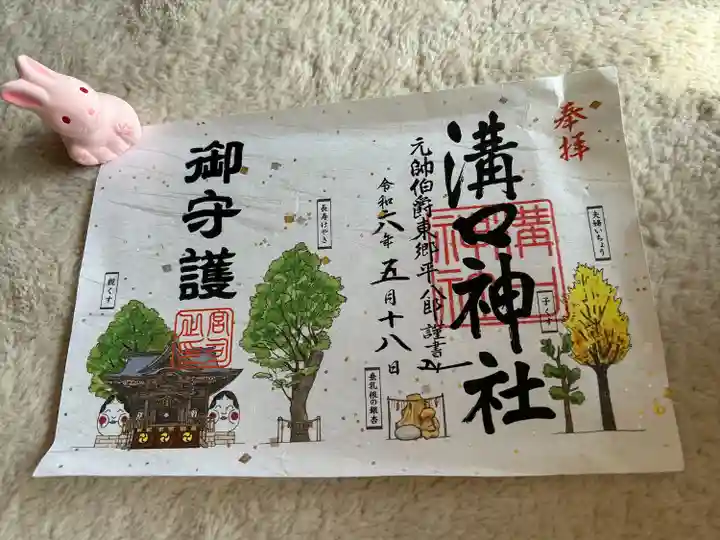 奉拝
溝口神社
元帥伯爵東郷平八郎謹書
令和六年五月十八日
御守護
夫婦いちょう
子くす
垂乳根の銀杏
長寿けやき
親くす
溝口神社
宮司之印